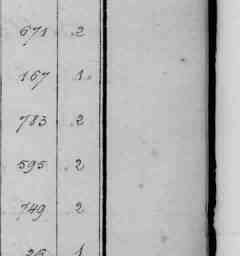 671 2
167 1
783 2
595 2
749 2
26 1